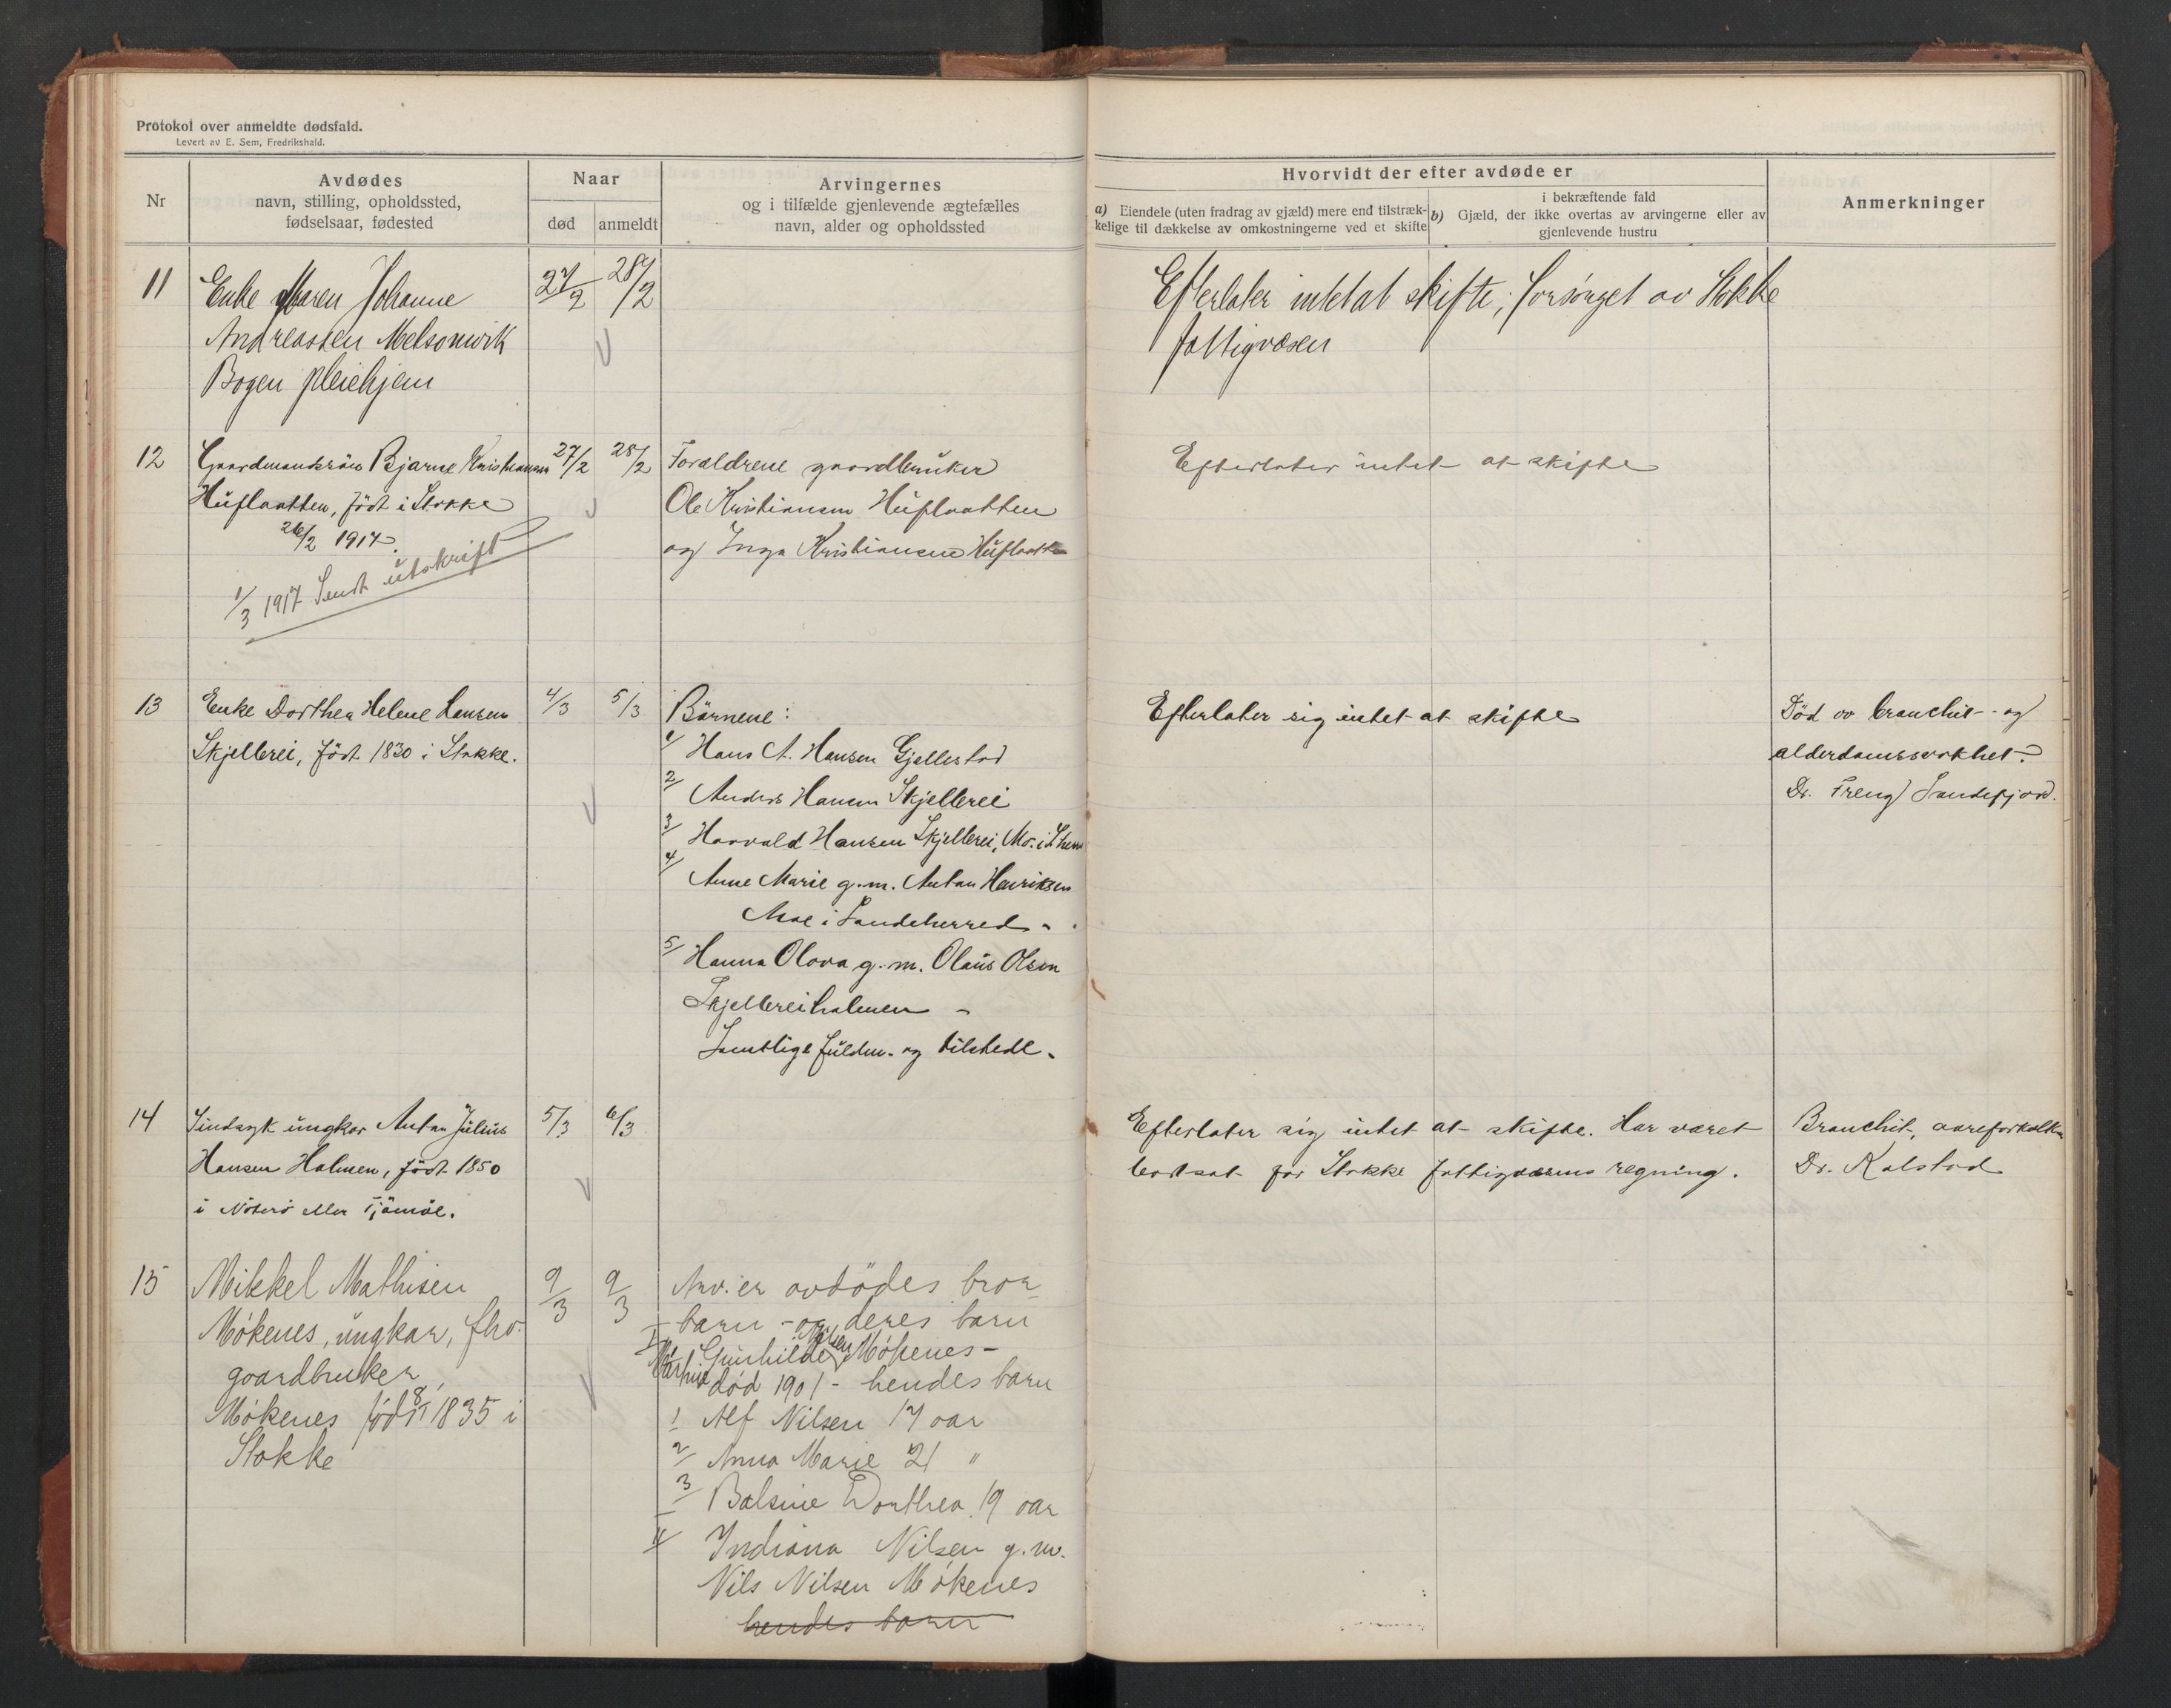 Protokol over anmeldte dødsfald.
Levert av E. Sem, Fredrikshald.
Nr
Avdødes
navn, stilling, opholdssted,
fødselsaar, fødested
Naar
død
anmeldt
Arvingernes
og i tilfælde gjenlevende ægtefælles
navn, alder og opholdssted
Hvorvidt der efter avdøde er
a) Eiendele (uten fradrag av gjæld) mere end tilstræk-
kelige til dækkelse av omkostningerne ved et skifte
i bekræftende fald
b) Gjæld, der ikke overtas av arvingerne eller av
gjenlevende hustru
Anmerkninger
11
Enke Maren Johanne
Andreassen Melsomvik
Bogen pleiehjem
27/2
28/2
Efterlater intet at skifte; forsørget av Stokke
fattigvæsen
12
Gaardmandssøn Bjarne Kristiansen
Huflaatten, født i Stokke
26/2 1917.
1/3 1917 Sendt utskrift
27/2
28/2
Forældrene gaardbruker
Ole Kristiansen Huflaatten
og Inga Kristiansen Huflaatten
Efterlater intet at skifte
13
Enke Dorthea Helene Hansen
Skjellerei, født 1830 i Stokke.
4/3
5/3
Børnene:
1/ Hans A. Hansen Gjellestad
2/ Anders Hansen Skjellerei
3/ Haavald Hansen Skjellerei, Mo. i
4/ Anne Marie g.m. Anton Henriksen
i Sandeherred -
5/ Hanna Olava g.m. Olaus Olsen
Skjellereiholmen -
Samtlige fuldm. og tilstede.
Efterlater sig intet at skifte
Død av bronchit- og
alderdomssvakhet.
Dr. Freng Sandefjord.
14
Sindssyk ungkar Anton Julius
Hansen Holmen, født 1850
i Nøterø eller Tjømøe.
5/3
6/3
Efterlater sig intet at skifte. Har været
bortsat for Stokke fattigvæsens regning.
Bronchit, aareforkalkn
Dr. Kalstad
15
Mikkel Mathisen
Møkenes, ungkar, fhv.
gaardbruker,
Møkenes født 8/1 1835 i
Stokke
9/3
9/3
Arv. er avdødes bror
barn - og deres barn
I Gunhilde Nilsen Møkenes -
død 1901 - hendes barn
1 Alf Nilsen 17 aar
2/ Anna Marie 21 "
3 Balsine Dorthea 19 aar
4/ Indiana Nilsen g.m.
Nils Nilsen Møkenes
hendes barn